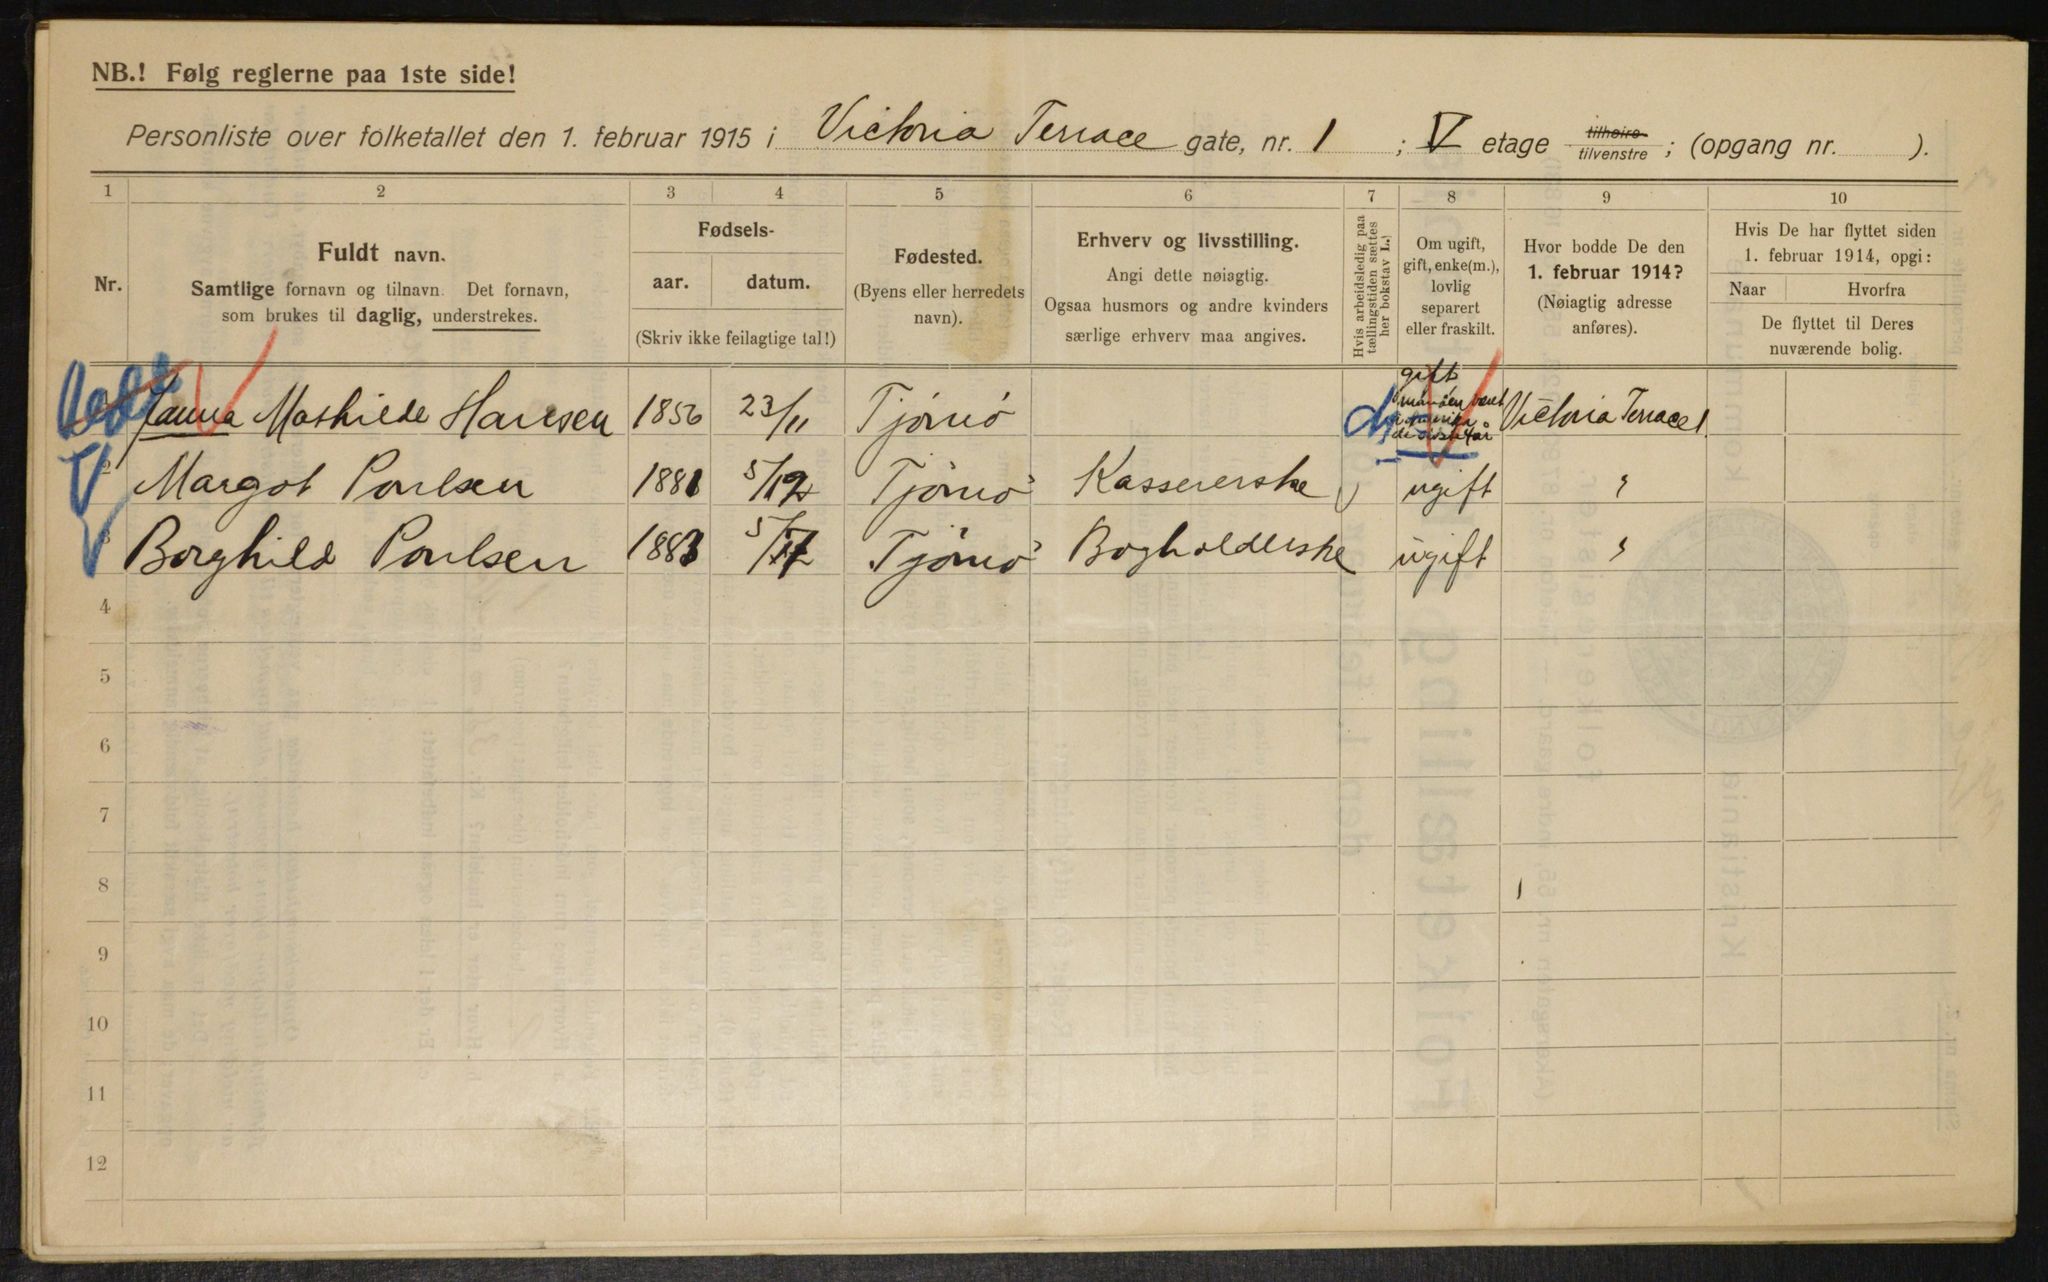 NB.! Følg reglerne paa 1ste side!
Personliste over folketallet den 1. februar 1915 i Victoria Terrace gate, nr. 1 ; V etage tilhøire tilvenstre ; (opgang nr. ).
1 2 3 4 5 6 7 8 9 10
Nr.
Fuldt navn.
Samtlige fornavn og tilnavn. Det fornavn,
som brukes til daglig, understrekes.
Fødsels-
aar. datum.
(Skriv ikke feilagtige tal!)
Fødested.
(Byens eller herredets
navn).
Erhverv og livsstilling.
Angi dette nøiagtig.
Ogsaa husmors og andre kvinders
særlige erhverv maa angives.
Hvis arbeidsledig paa
tællingstiden sættes
her bokstav L.)
Om ugift,
gift, enke(m.),
lovlig
separert
eller fraskilt.
Hvor bodde De den
1. februar 1914?
(Nøiagtig adresse
anføres).
Hvis De har flyttet siden
1. februar 1914, opgi:
Naar Hvorfra
De flyttet til Deres
nuværende bolig.
Mathilde Hansen 1856 23/11 Tjömö gift Victoria Terrace 1
2 Margot Poulsen 1881 Tjömö Kassererske ugift "
3 Borghild Poulsen 1883 Tjömö Bogholderske ugift "
4
5
6
7
8
9
10
11
12